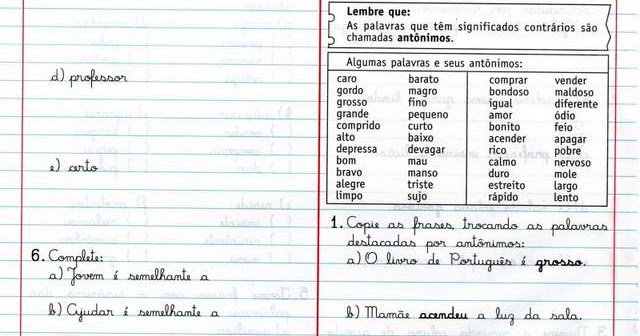 d) professor
e) certo
6. Complete:
a) Jovem é semelhante a
b) Ajudar é semelhante a
Lembre que:
As palavras que têm significados contrários são
chamadas antônimos.
Algumas palavras e seus antônimos:
caro barato comprar vender
gordo magro bondoso maldoso
grosso fino igual diferente
grande pequeno amor ódio
comprido curto bonito feio
alto baixo acender apagar
depressa devagar rico pobre
bom mau calmo nervoso
bravo manso duro mole
alegre triste estreito largo
limpo sujo rápido lento
1. Copie as frases, trocando as palavras
destacadas por antônimos:
a) O livro de Português é grosso.
b) Mamãe acendeu a luz da sala.